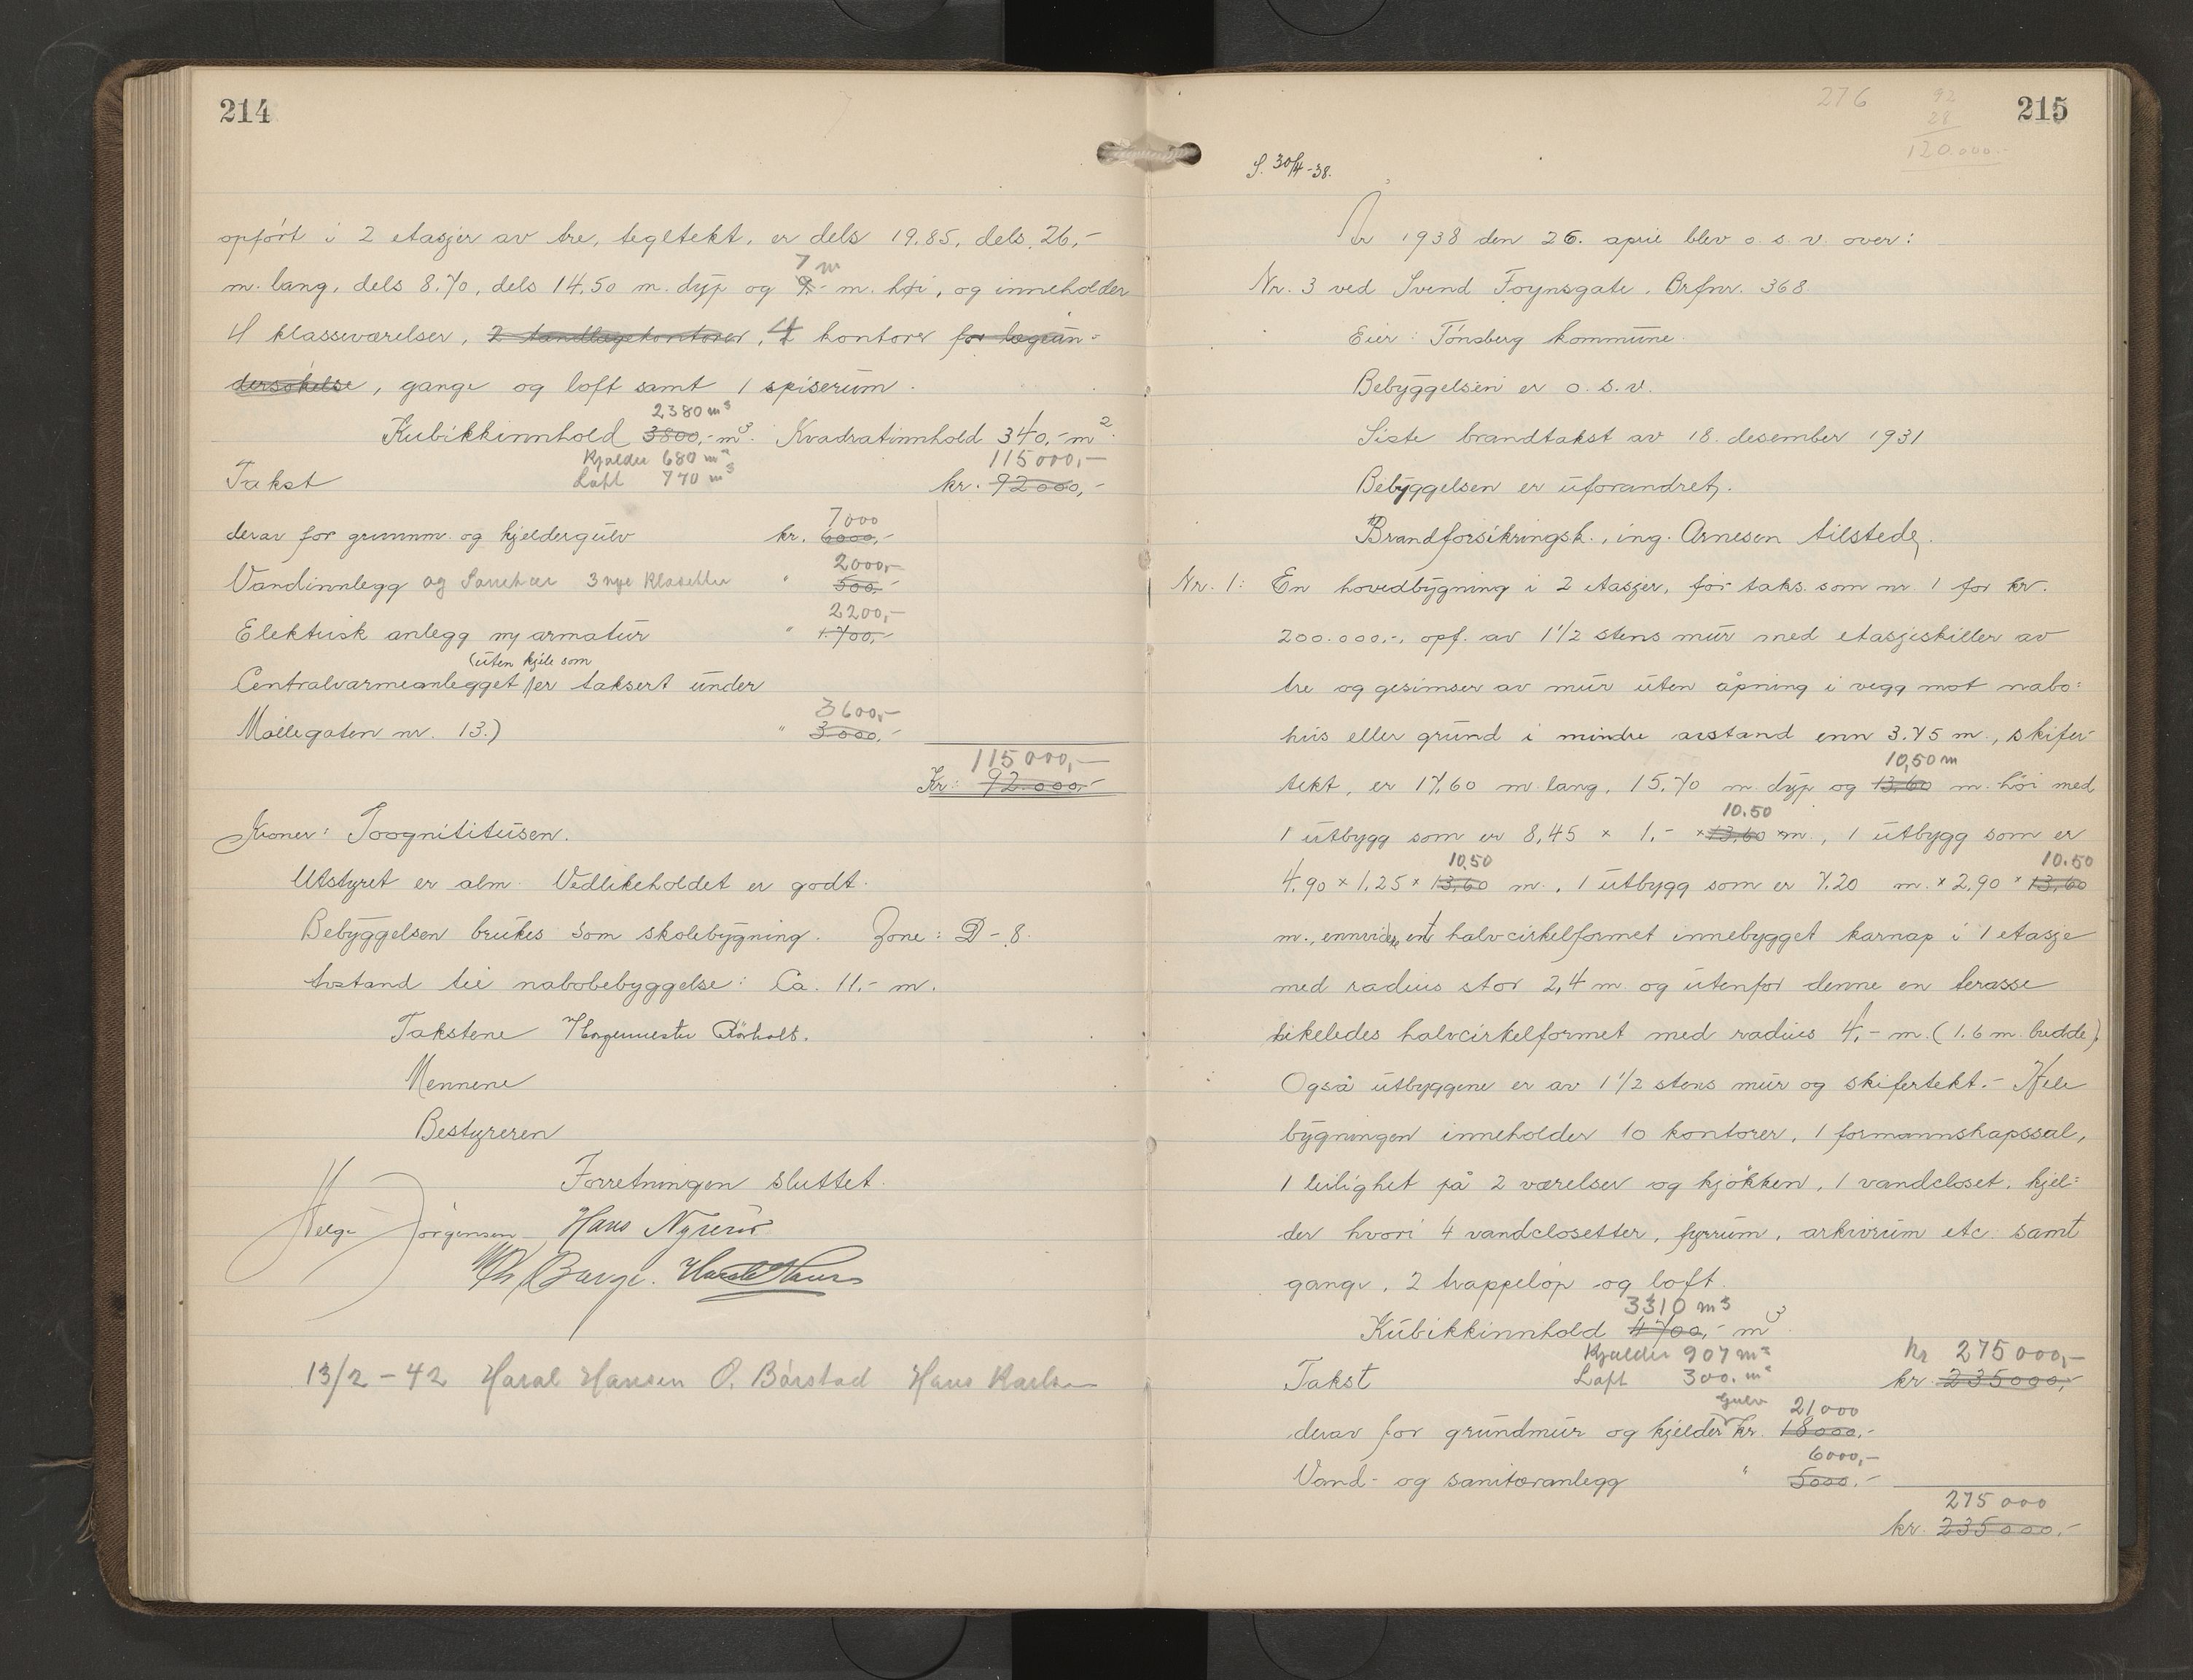 214
opført i 2 etasjer av tre, tegltekt, er dels 19.85, dels 26,-
7 m
m. lang, dels 8.70, dels 14.50 m. dyp og 9.- m. høi, og inneholder
4 klasseværelser, 2 tandlægekontorer, 4 kontorer for lægeun-
dersøkelse, gange og loft samt 1 spiserum.
2380 m³
Kubikkinnhold 3800,- m³. Kvadratinnhold 340,- m².
Kjelder 680 m³ 115000,-
Takst Loft 770 m³ kr. 92000,-
7000
derav for grunnm. og kjeldergulv kr. 6000,-
2000,-
Vandinnlegg og Sanitær 3 nye Klosetter " 500,-
2200,-
Elektrisk anlegg ny armatur " 1.700,-
(uten kjele som
Centralvarmeanlegget er taksert under
3600,-
Møllegaten nr. 13.) " 3.000,-
115000,-
Kr: 92.000,-
Kroner: Toognittitusen.
Utstyret er alm. Vedlikeholdet er godt.
Bebyggelsen brukes som skolebygning. Zone: D-8.
Avstand til nabobebyggelse: Ca. 11.- m.
Takstene
Mennene
Bestyreren
Forretningen sluttet.
Helge Jørgensen Hans
13/2-42 Haral Hansen O. Bårstad Hans Karlsen
276
92
28
120.000.-
215
S. 30/4-38.
År 1938 den 26. april blev o.s.v. over:
Nr. 3 ved Svend Foynsgate. Brfnr. 368
Eier: Tønsberg kommune.
Bebyggelsen er o.s.v.
Siste brandtakst av 18. desember 1931
Bebyggelsen er uforandret.
Brandforsikringsk., ing. Arnesen tilstede.
Nr. 1: En hovedbygning i 2 etasjer, før taks. som nr. 1 for kr.
200.000.-, opf. av 1 1/2 stens mur med etasjeskiller av
tre og gesimser av mur uten åpning i vegg mot nabo-
hus eller grund i mindre avstand enn 3.75 m., skifer-
10,50 m
tekt, er 17.60 m lang, 15.70 m. dyp og 13.60 m. høi med
10.50
1 utbygg som er 8,45 × 1.- × 13.60 m., 1 utbygg som er
10,50 10.50
4.90 × 1.25 × 13.60 m., 1 utbygg som er 7.20 m. × 2.90 × 13.60
m., ennvidere, ent halvcirkelformet innebygget karnap i 1 etasje
med radius stor 2,4 m og utenfor denne en terasse
likeledes halvcirkelformet med radius 4,- m. (1.6 m. bredde).
Også utbyggene er av 1 1/2 stens mur og skifertekt.- Hele
bygningen inneholder 10 kontorer, 1 formannskapssal,
1 leilighet på 2 værelser og kjøkken, 1 vandcloset, kjel-
der hvori 4 vandclosetter, fyrrum, arkivrum etc. samt
gange, 2 trappeløp og loft.
3310 m³
Kubikkinnhold 4700,- m³.
Kjelder 907 m³ kr 275000,-
Takst Loft 300. m³ kr. 235000,-
gulv 21000
derav for grundmur og kjelder kr. 18000,-
6000,-
Vand- og sanitæranlegg " 5000,-
275000
kr. 235000,-